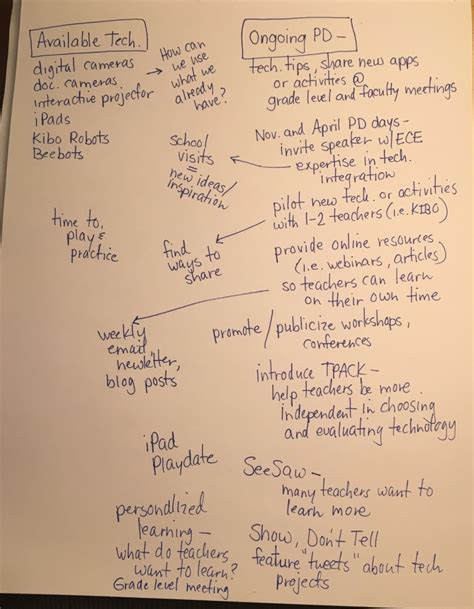 Available Tech.
digital cameras
doc. cameras
interactive projector
iPads
Kibo Robots
Beebots
How can
we use
what we
already
have?
school
visits
=
new ideas/
inspiration
time to
play &
practice
find
ways to
share
weekly
email,
newletter,
blog posts
iPad
Playdate
persondlized
learning –
what do teachers
want to learn?
Grade level meeting
Ongoing PD –
tech. tips, share new apps
or activities @
grade level and faculty meetings
Nov. and April PD days –
invite speaker w/ECE
expertise in tech.
integration
pilot new tech. or activities
with 1-2 teachers (i.e. KIBO)
provide online resources
(i.e. webinars, articles)
so teachers can learn
on their own time
promote/publicize workshops,
conferences
introduce TPACK –
help teachers be more
independent in choosing
and evaluating technology
SeeSaw –
many teachers want to
learn more
Show, Don't Tell
feature "tweets" about tech
projects